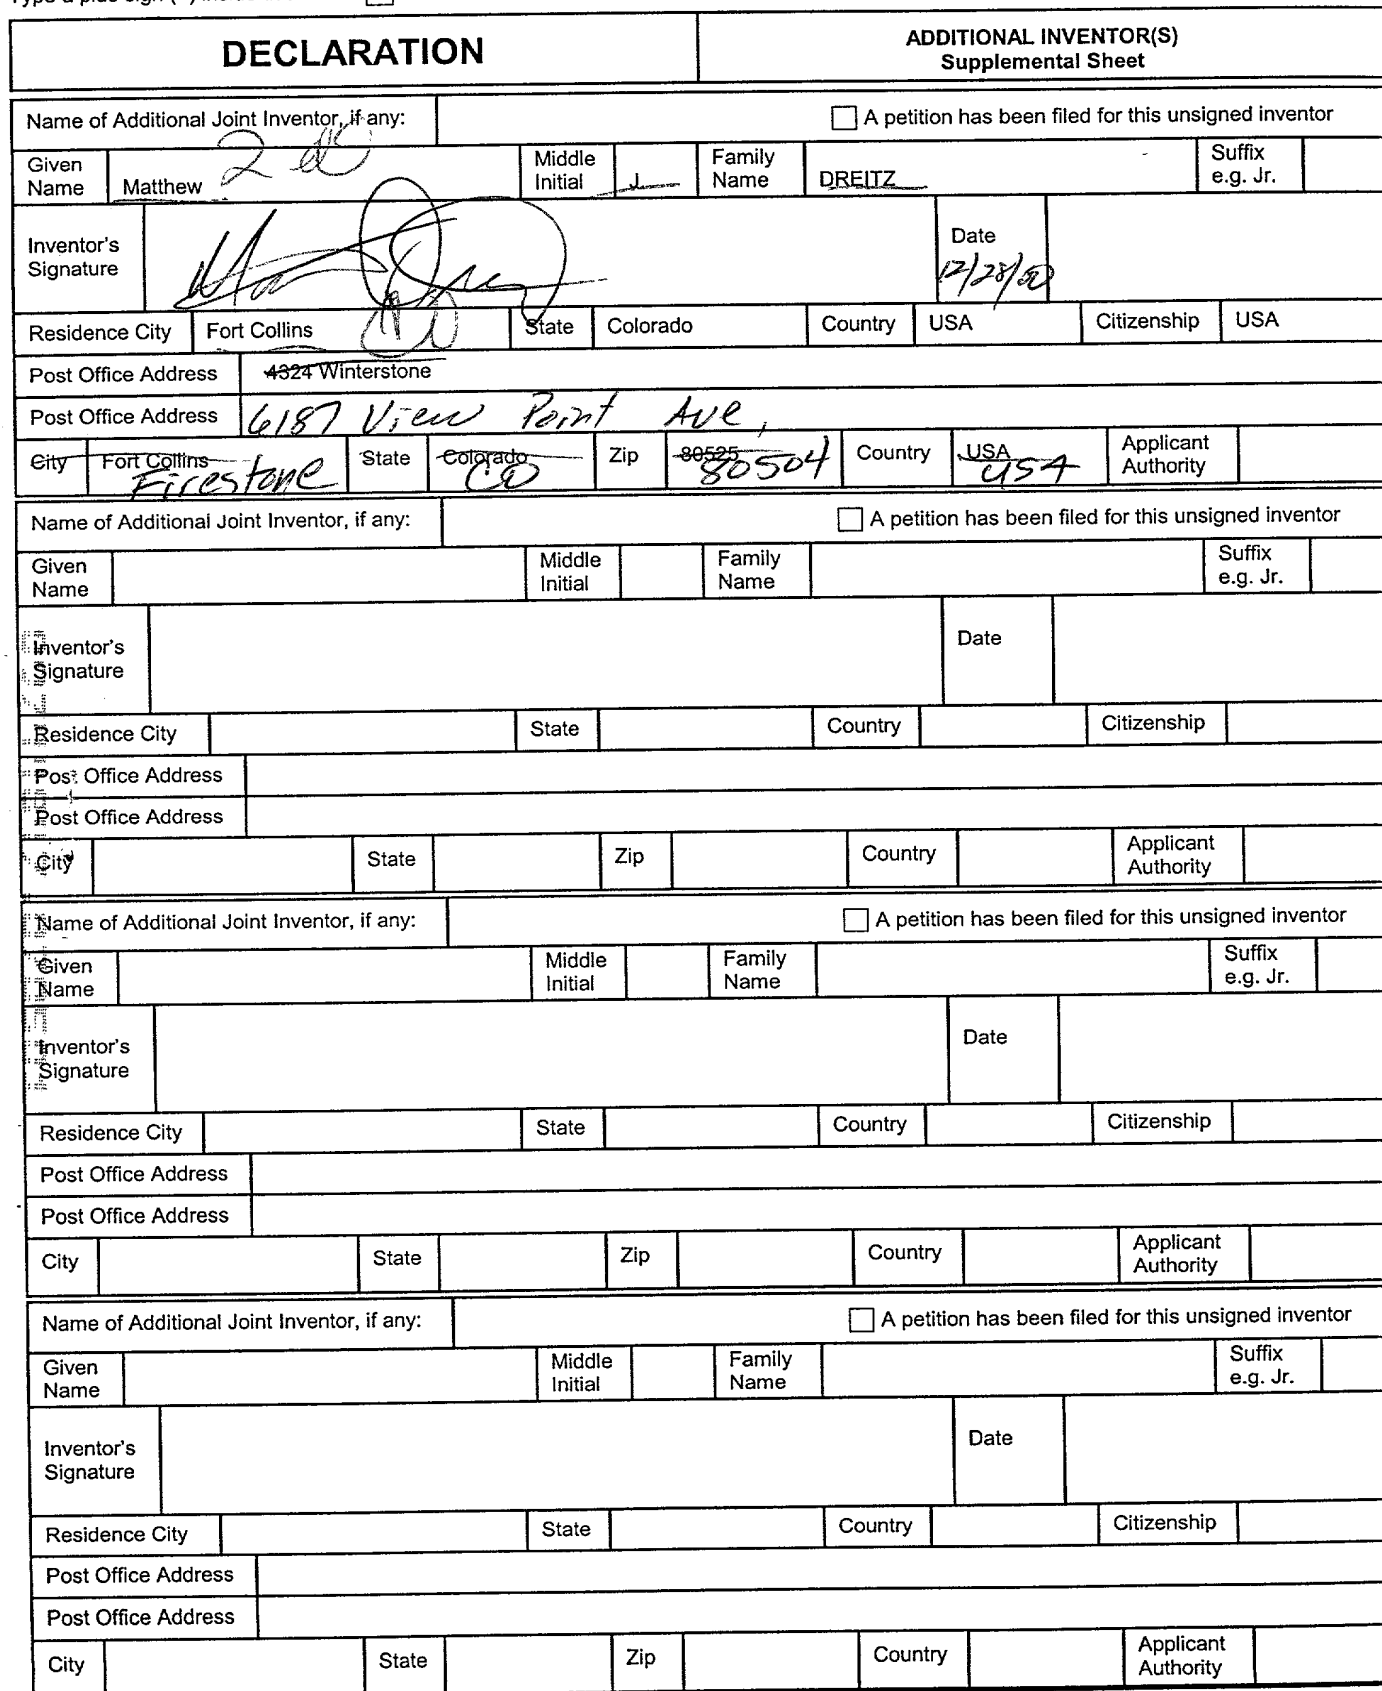 DECLARATION
ADDITIONAL INVENTOR(S)
Supplemental Sheet
Name of Additional Joint Inventor, if any:
A petition has been filed for this unsigned inventor
Given Name Matthew Middle Initial J Family Name DREITZ Suffix e.g. Jr.
Inventor's Signature Date 12/28/00
Residence City Fort Collins State Colorado Country USA Citizenship USA
Post Office Address 4324 Winterstone
Post Office Address 6187 View Point Ave,
City Fort Collins Firestone State Colorado CO Zip 80525 80504 Country USA USA Applicant Authority
Name of Additional Joint Inventor, if any:
A petition has been filed for this unsigned inventor
Given Name Middle Initial Family Name Suffix e.g. Jr.
Inventor's Signature Date
Residence City State Country Citizenship
Post Office Address
Post Office Address
City State Zip Country Applicant Authority
Name of Additional Joint Inventor, if any:
A petition has been filed for this unsigned inventor
Given Name Middle Initial Family Name Suffix e.g. Jr.
Inventor's Signature Date
Residence City State Country Citizenship
Post Office Address
Post Office Address
City State Zip Country Applicant Authority
Name of Additional Joint Inventor, if any:
A petition has been filed for this unsigned inventor
Given Name Middle Initial Family Name Suffix e.g. Jr.
Inventor's Signature Date
Residence City State Country Citizenship
Post Office Address
Post Office Address
City State Zip Country Applicant Authority